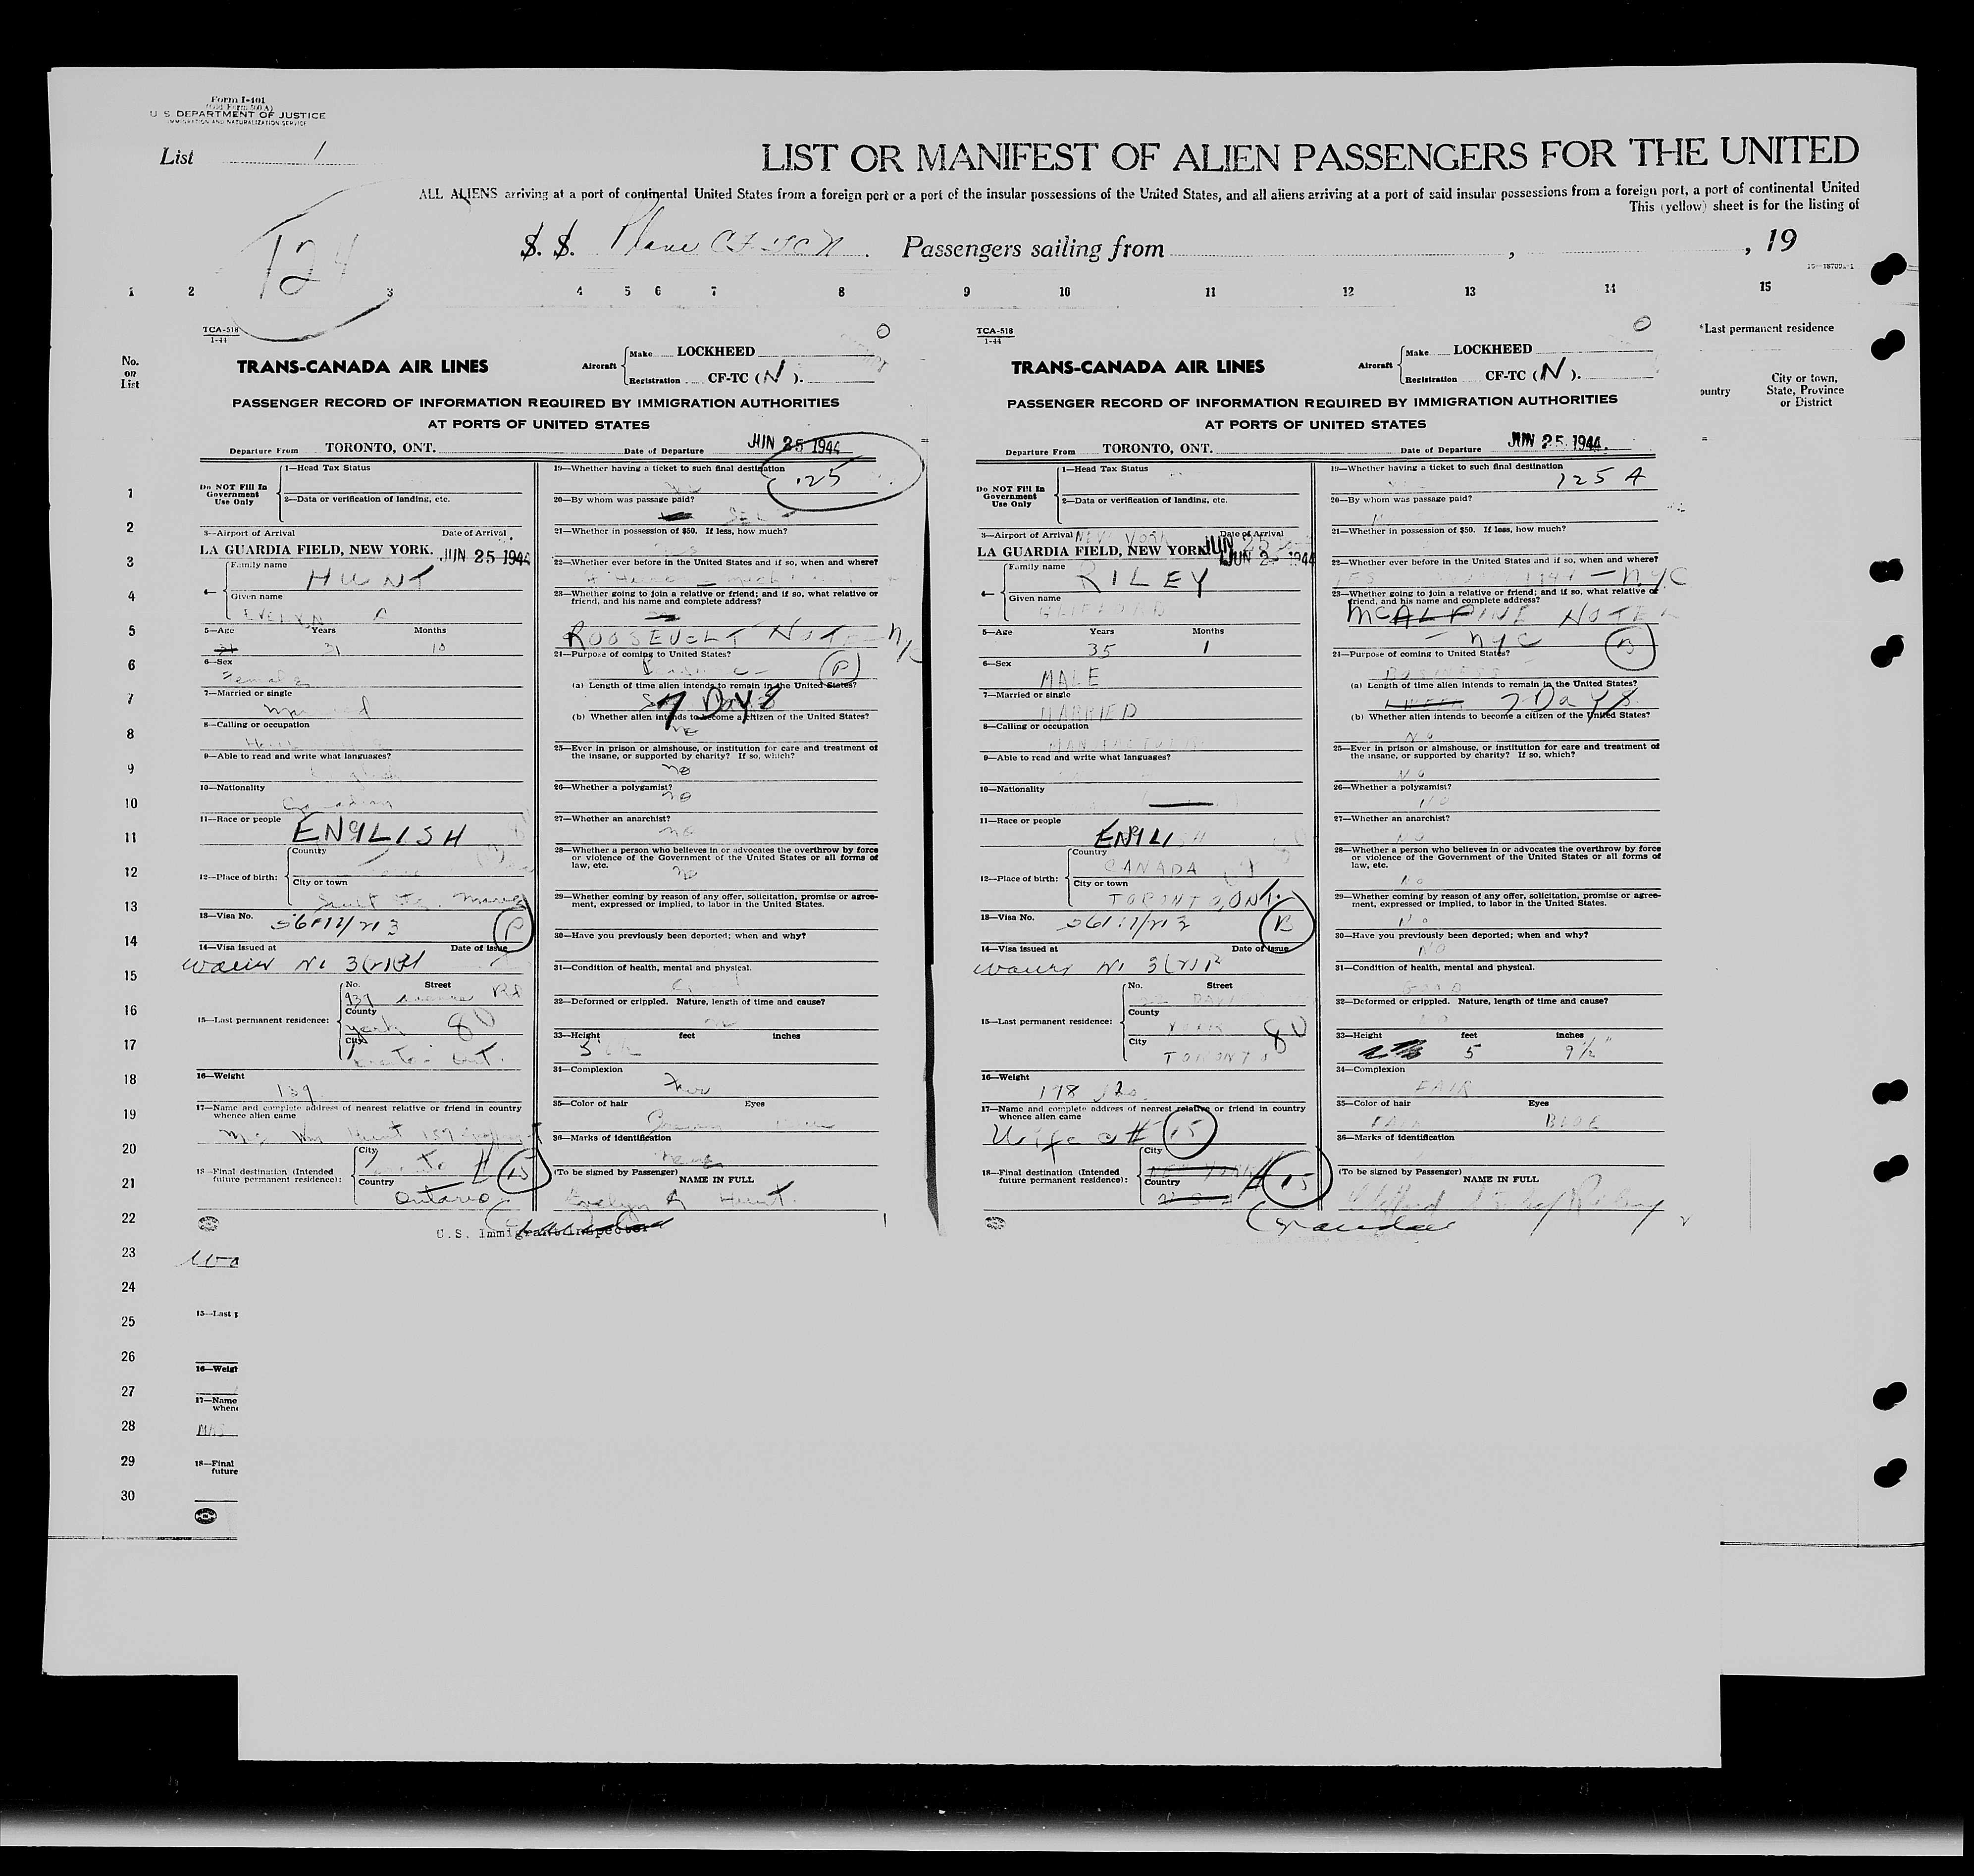 Form I-401
(Old Form 500 A)
U. S. DEPARTMENT OF JUSTICE
IMMIGRATION AND NATURALIZATION SERVICE
List 1
LIST OR MANIFEST OF ALIEN PASSENGERS FOR THE UNITED
ALL ALIENS arriving at a port of continental United States from a foreign port or a port of the insular possessions of the United States, and all aliens arriving at a port of said insular possessions from a foreign port, a port of continental United
This (yellow) sheet is for the listing of
124
S. S. Plane Passengers sailing from , , 19
1 2 3 4 5 6 7 8 9 10 11 12 13 14 15
No.
on
List
*Last permanent residence
ountry
City or town,
State, Province
or District
1
2
3
4
5
6
7
8
9
10
11
12
13
14
15
16
17
18
19
20
21
22
23
24
25
26
27
28
29
30
TCA-518
1-44
TRANS-CANADA AIR LINES
Aircraft
Make LOCKHEED
Registration CF-TC (N).
PASSENGER RECORD OF INFORMATION REQUIRED BY IMMIGRATION AUTHORITIES
AT PORTS OF UNITED STATES
Departure From TORONTO, ONT. Date of Departure JUN 25 1944
Do NOT Fill In
Government
Use Only
1—Head Tax Status
2—Data or verification of landing, etc.
3—Airport of Arrival Date of Arrival
LA GUARDIA FIELD, NEW YORK. JUN 25 1944
4—
Family name
HUNT
Given name
EVELYN A
5—Age Years Months
31 10
6—Sex
Female
7—Married or single
8—Calling or occupation
9—Able to read and write what languages?
10—Nationality
Canadian
11—Race or people
ENGLISH
12—Place of birth:
Country
City or town
Sault Ste. Marie
13—Visa No.
P
14—Visa issued at Date of issue
15—Last permanent residence:
No. Street
937 Avenue Rd
County
York 80
City
Ont.
16—Weight
139
17—Name and complete address of nearest relative or friend in country
whence alien came
Wm Hunt
18—Final destination (Intended
future permanent residence):
City
15
Country
Ontario
U.S. Immigrant Inspector
19—Whether having a ticket to such final destination
125
20—By whom was passage paid?
21—Whether in possession of $50. If less, how much?
22—Whether ever before in the United States and if so, when and where?
23—Whether going to join a relative or friend; and if so, what relative or
friend, and his name and complete address?
ROOSEVELT HOTEL NYC
24—Purpose of coming to United States?
P
(a) Length of time alien intends to remain in the United States?
7 DAYS
(b) Whether alien intends to become a citizen of the United States?
no
25—Ever in prison or almshouse, or institution for care and treatment of
the insane, or supported by charity? If so, which?
no
26—Whether a polygamist?
no
27—Whether an anarchist?
no
28—Whether a person who believes in or advocates the overthrow by force
or violence of the Government of the United States or all forms of
law, etc.
no
29—Whether coming by reason of any offer, solicitation, promise or agree-
ment, expressed or implied, to labor in the United States.
30—Have you previously been deported; when and why?
31—Condition of health, mental and physical.
32—Deformed or crippled. Nature, length of time and cause?
no
33—Height feet inches
34—Complexion
Fair
35—Color of hair Eyes
36—Marks of identification
(To be signed by Passenger) NAME IN FULL
Evelyn A Hunt.
TCA-518
1-44
TRANS-CANADA AIR LINES
Aircraft
Make LOCKHEED
Registration CF-TC (N).
PASSENGER RECORD OF INFORMATION REQUIRED BY IMMIGRATION AUTHORITIES
AT PORTS OF UNITED STATES
Departure From TORONTO, ONT. Date of Departure JUN 25 1944
Do NOT Fill In
Government
Use Only
1—Head Tax Status
2—Data or verification of landing, etc.
3—Airport of Arrival NEW YORK Date of Arrival
LA GUARDIA FIELD, NEW YORK JUN 25 1944
4—
Family name
RILEY
Given name
CLIFFORD
5—Age Years Months
35 1
6—Sex
MALE
7—Married or single
MARRIED
8—Calling or occupation
9—Able to read and write what languages?
10—Nationality
11—Race or people
ENGLISH
12—Place of birth:
Country
CANADA
City or town
TORONTO, ONT.
13—Visa No.
B
14—Visa issued at Date of issue
15—Last permanent residence:
No. Street
County
YORK 80
City
TORONTO
16—Weight
178 lbs.
17—Name and complete address of nearest relative or friend in country
whence alien came
Wife # 15
18—Final destination (Intended
future permanent residence):
City
NEW YORK # 15
Country
U.S.A
19—Whether having a ticket to such final destination
125 A
20—By whom was passage paid?
21—Whether in possession of $50. If less, how much?
22—Whether ever before in the United States and if so, when and where?
YES 1944 — NYC
23—Whether going to join a relative or friend; and if so, what relative or
friend, and his name and complete address?
MCALPINE HOTEL
— NYC B
24—Purpose of coming to United States?
BUSINESS
(a) Length of time alien intends to remain in the United States?
7 Days.
(b) Whether alien intends to become a citizen of the United States?
NO
25—Ever in prison or almshouse, or institution for care and treatment of
the insane, or supported by charity? If so, which?
NO
26—Whether a polygamist?
NO
27—Whether an anarchist?
NO
28—Whether a person who believes in or advocates the overthrow by force
or violence of the Government of the United States or all forms of
law, etc.
NO
29—Whether coming by reason of any offer, solicitation, promise or agree-
ment, expressed or implied, to labor in the United States.
NO
30—Have you previously been deported; when and why?
NO
31—Condition of health, mental and physical.
GOOD
32—Deformed or crippled. Nature, length of time and cause?
NO
33—Height feet inches
5 9½"
34—Complexion
FAIR
35—Color of hair Eyes
FAIR BLUE
36—Marks of identification
(To be signed by Passenger) NAME IN FULL
Clifford Riley
15—Last p
16—Weight
17—Name
whenc
18—Final
future